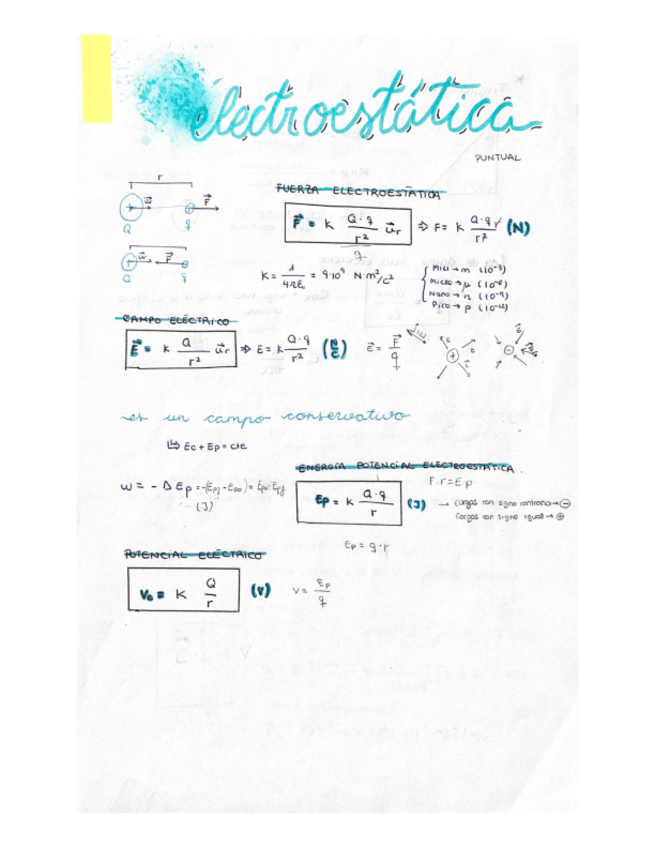 electroestática
PUNTUAL
r
FUERZA ELECTROESTÁTICA
Q q
F⃗ = K Q·q/r² u⃗r ⇒ F = K Q·q/r² (N)
K = 1/4πε₀ = 9·10⁹ N·m²/C²
Mili → m (10⁻³)
Micro → μ (10⁻⁶)
Nano → n (10⁻⁹)
Pico → p (10⁻¹²)
Q q
CAMPO ELÉCTRICO
E⃗ = K Q/r² u⃗r ⇒ E = K Q·q/r² (N/C) E⃗ = F⃗/q
es un campo conservativo
↳ Ec + Ep = cte
ENERGÍA POTENCIAL ELECTROESTÁTICA
F·r = Ep
W = - Δ Ep = -(Epf - Ep0) = Ep0 - Epf
(J)
Ep = K Q·q/r (J) → cargas con signo contrario → ⊖
cargas con signo igual → ⊕
POTENCIAL ELÉCTRICO
K Q/r (V) V = Ep/q